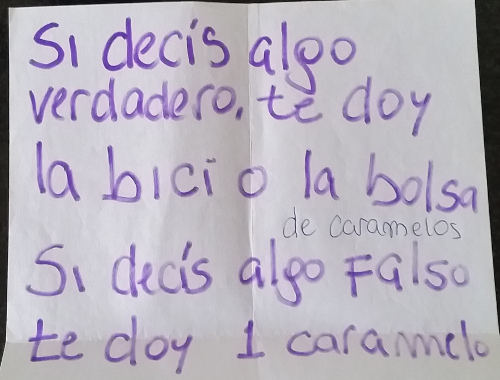 Si decís algo
verdadero, te doy
la bici o la bolsa
de caramelos
Si decís algo Falso
te doy 1 caramelo